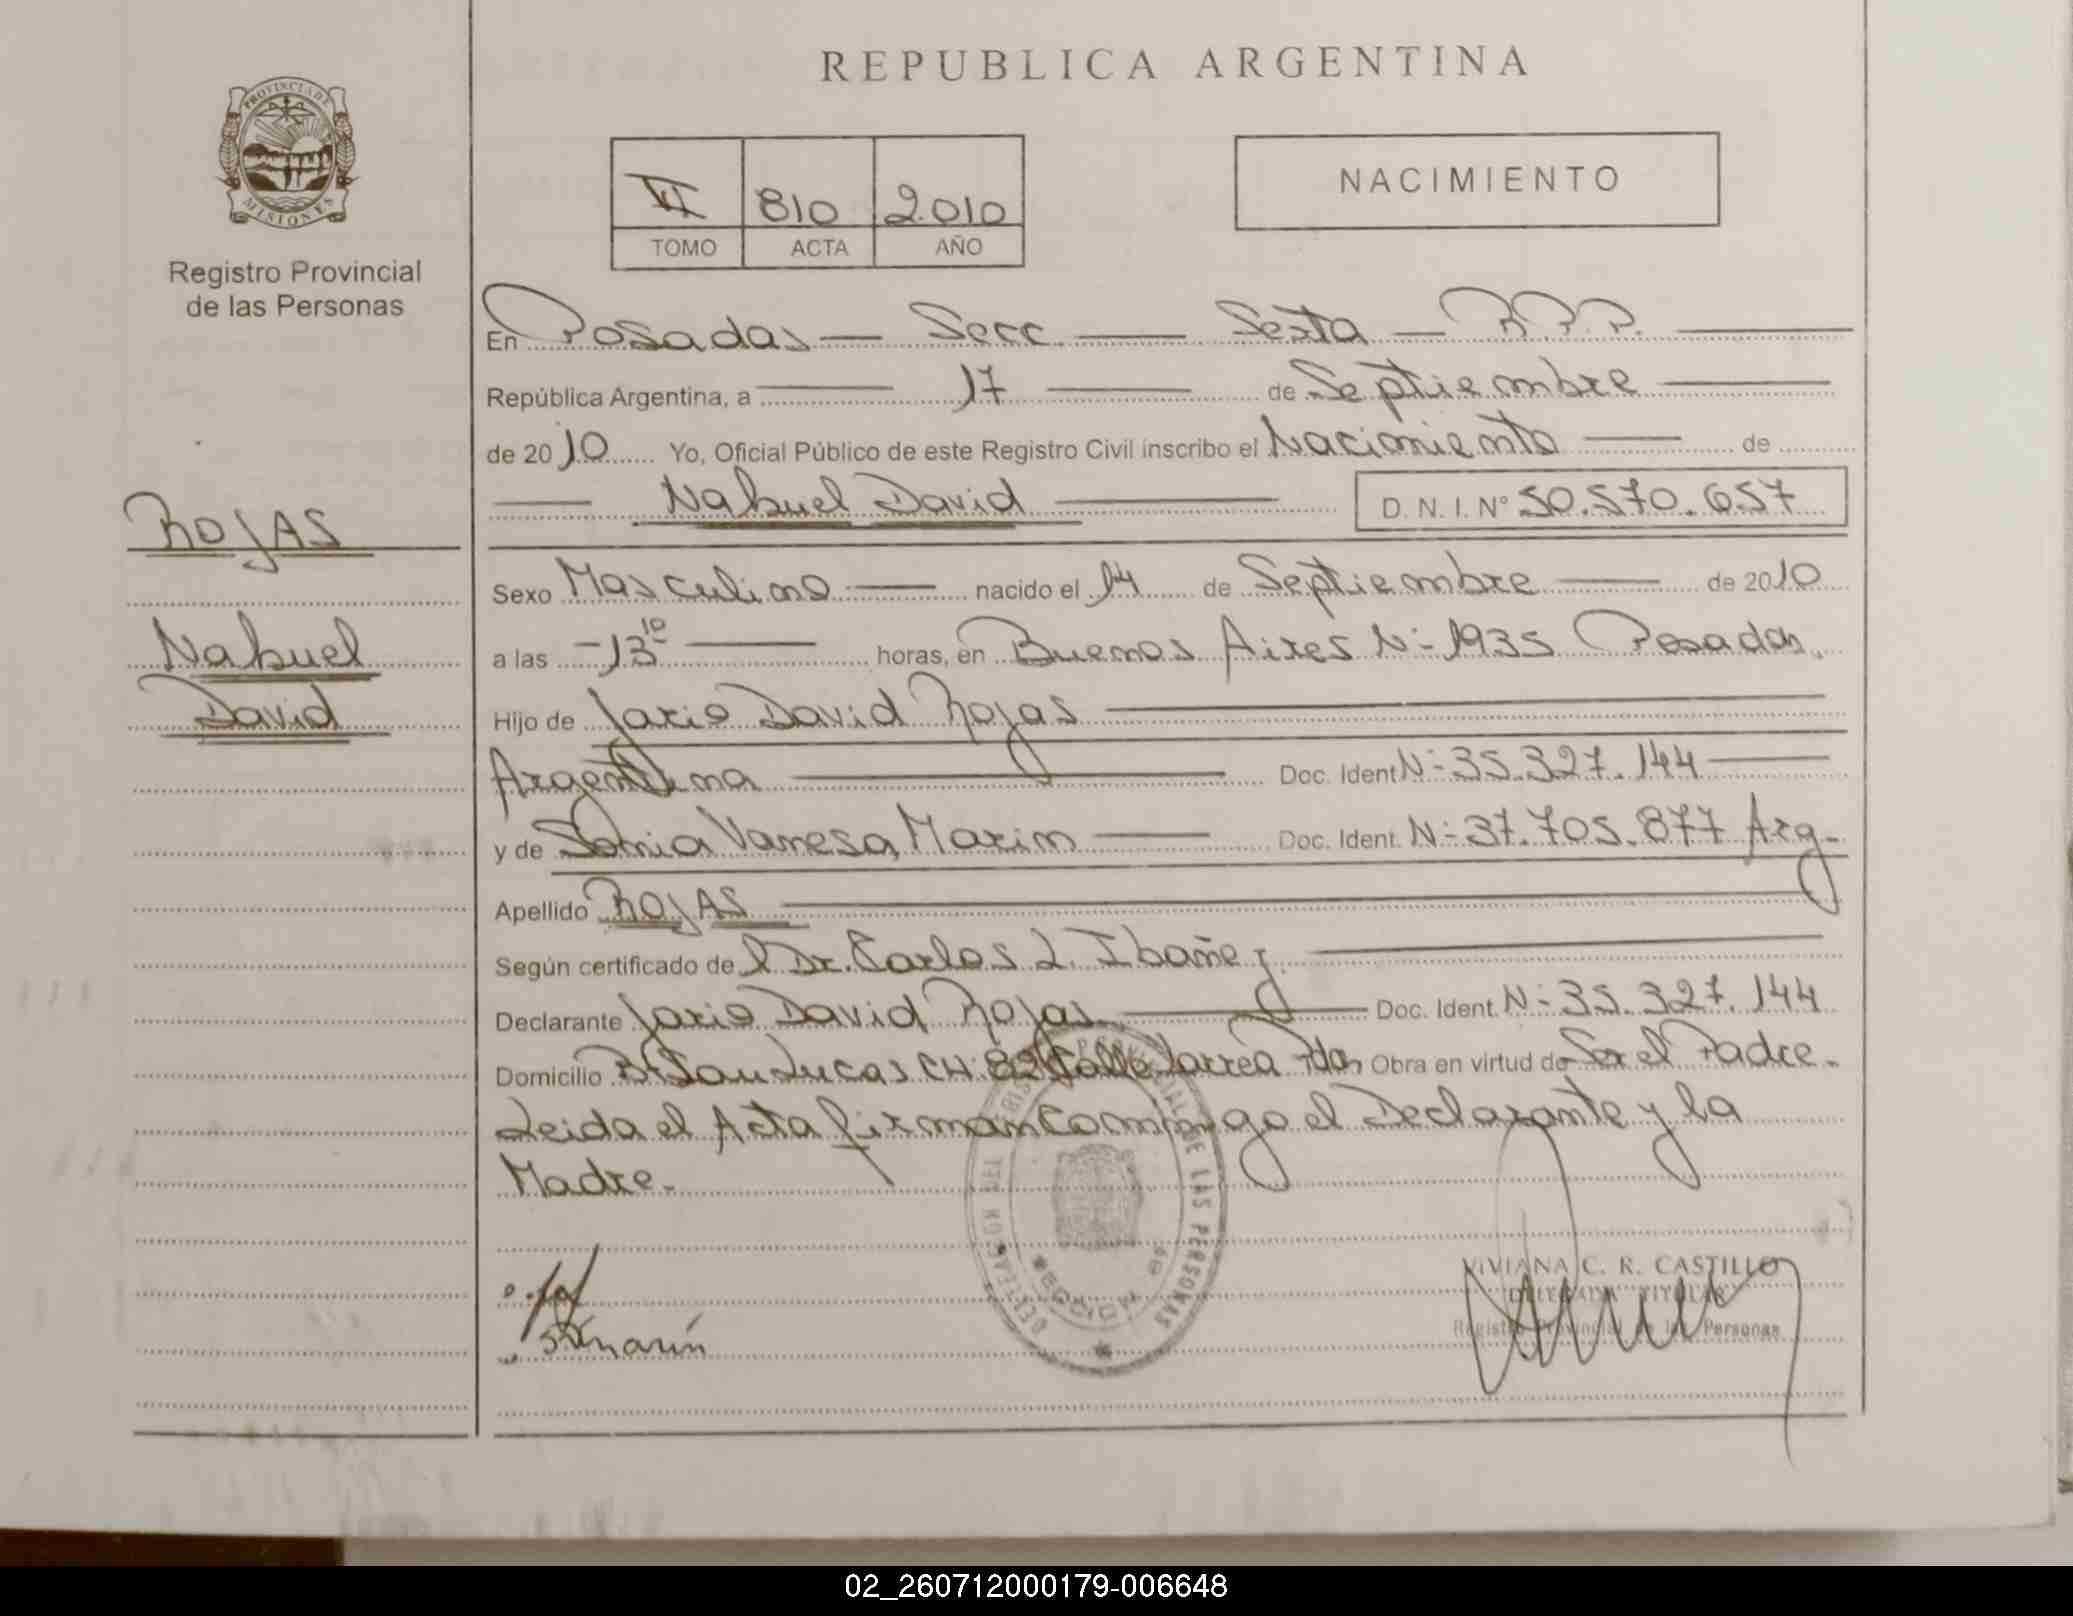 REPUBLICA ARGENTINA
PROVINCIA DE MISIONES
Registro Provincial
de las Personas
VI 810 2.010
TOMO ACTA AÑO
NACIMIENTO
ROJAS
Nahuel
David
En Posadas — Secc. — Sexta — R.P.P. —
República Argentina, a — 17 — de Septiembre —
de 2010 Yo, Oficial Público de este Registro Civil inscribo el Nacimiento — de
— Nahuel David — D. N. I. N° 50.570.657
Sexo Masculino — nacido el 14 de Septiembre — de 2010
a las -13 10 — horas, en Buenos Aires N- 1935 Posadas.
Hijo de Jario David Rojas —
Argentina — Doc. Ident N- 35.327.144 —
y de Sonia Vanesa Marin — Doc. Ident. N- 37.705.877 Arg-
Apellido ROJAS —
Según certificado de l Dr. Carlos L. Ibañez. —
Declarante Jario David Rojas — Doc. Ident. N- 35.327.144
Domicilio B° San Lucas CH. 82 Calle Larrea Pdas Obra en virtud de Ser el Padre.
Leida el Acta firman Conmigo el Declarante y la
Madre.
PROVINCIAL DE LAS PERSONAS
SECCION 6ª
VIVIANA C. R. CASTILLO
DELEGADA TITULAR
Registro Provincial de las Personas
S.V.marin
02_260712000179-006648